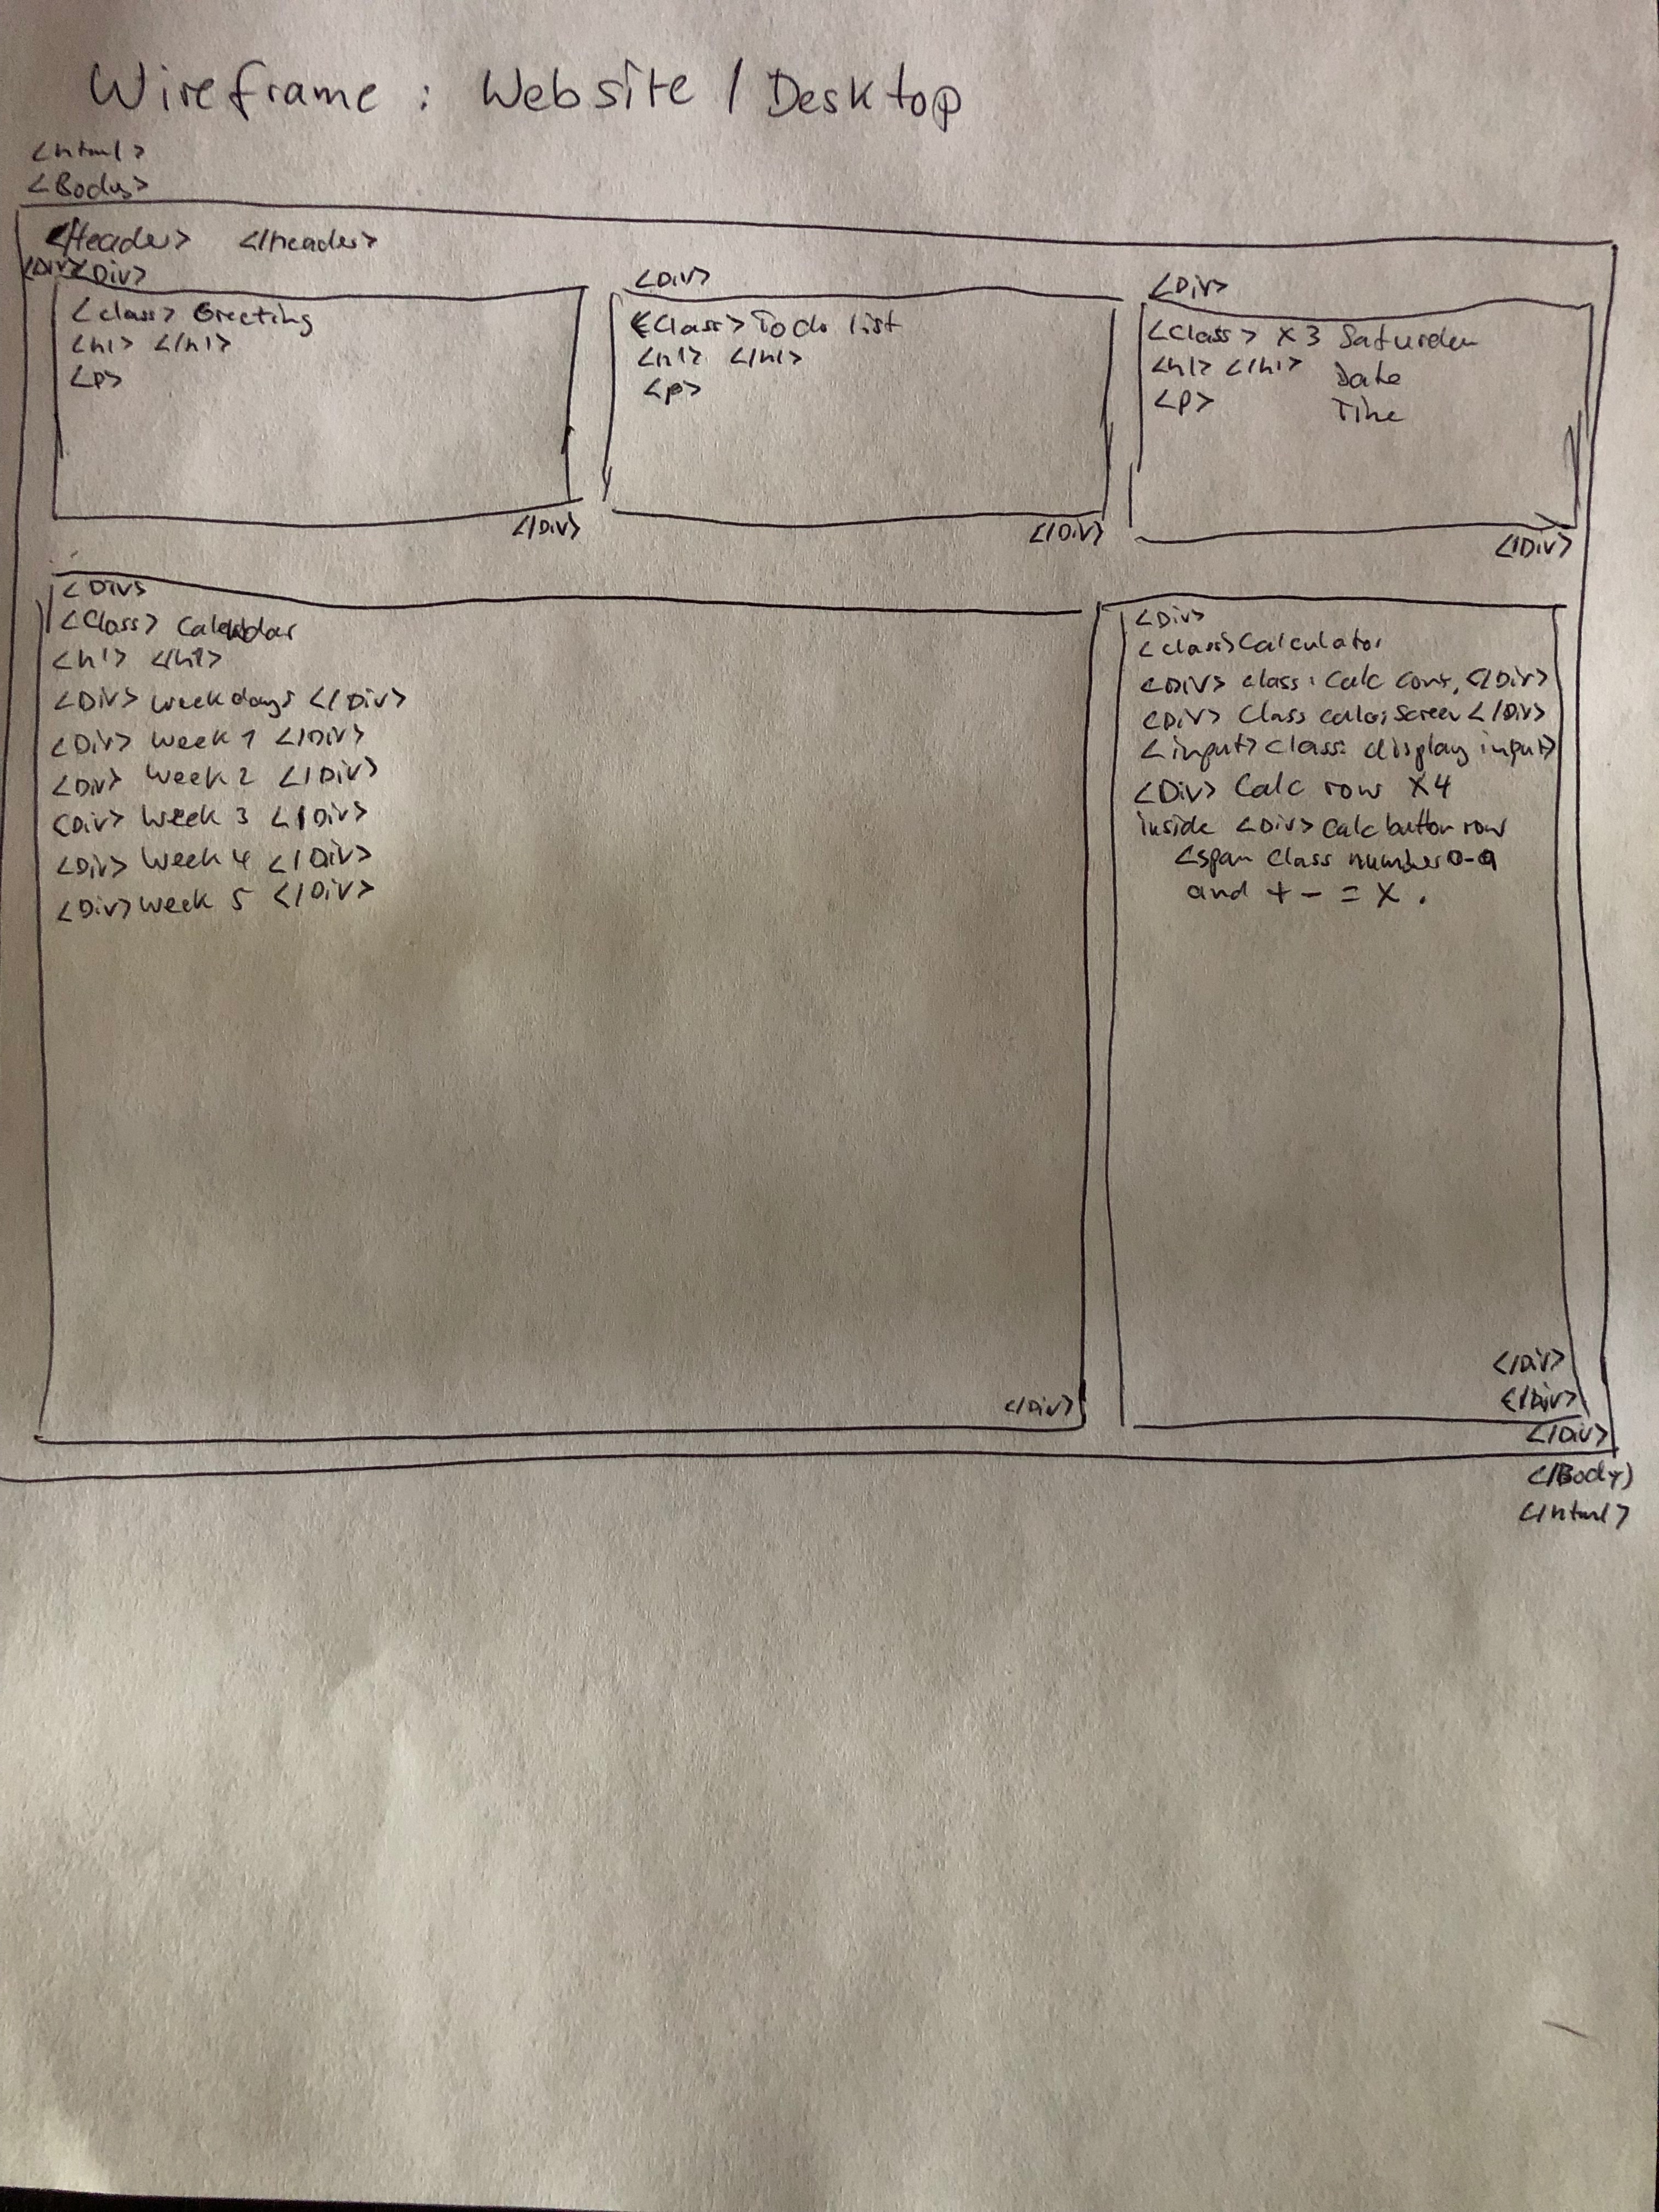 Wireframe : Website / Desktop
<html>
<Body>
<Header> </Header>
<Div><Div>
<class> Greeting
<h1> </h1>
<p>
</Div>
<Div>
<Class> To do list
<h1> </h1>
<p>
</Div>
<Div>
<Class> x3 Saturday
<h1> </h1> Date
<p> Time
</Div>
<Div>
<Class> Calendar
<h1> </h1>
<Div> weekdays </Div>
<Div> Week 1 </Div>
<Div> Week 2 </Div>
<Div> Week 3 </Div>
<Div> Week 4 </Div>
<Div> Week 5 </Div>
</Div>
<Div>
<class> Calculator
<Div> class: Calc cont. </Div>
<Div> Class Screen </Div>
<input> class: display input>
<Div> Calc row x4
inside <Div> calc button row
<span class number 0-9
and + - = x .
</Div>
</Div>
</Div>
</Body)
</html>